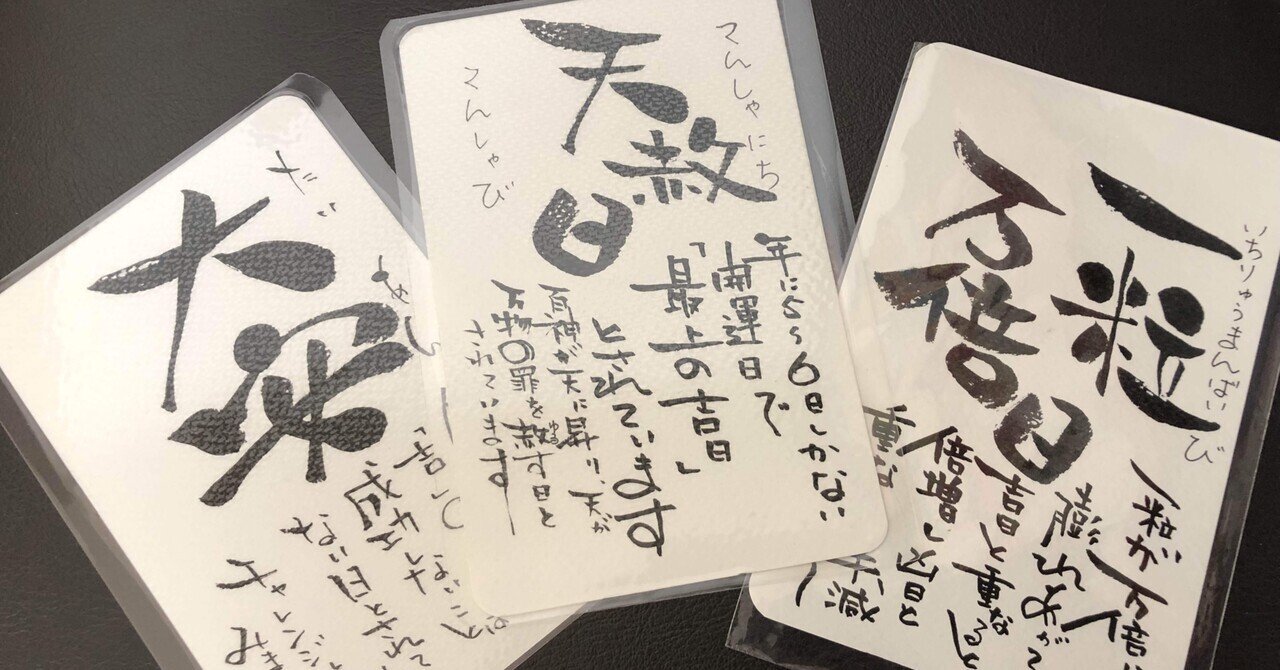 大
成功しないことは
ない日とされて
チャレンジ
てんしゃにち
天赦日
てんしゃび
年に5〜6日しかない
開運日で
「最上の吉日」
とされています
百神が天に昇り、天が
万物の罪を赦す日と
ゆる
されています
いちりゅうまんばいび
一粒
万倍日
一粒が万倍に
膨れあがって
吉日と重なると
倍増し凶日と
重な
半減